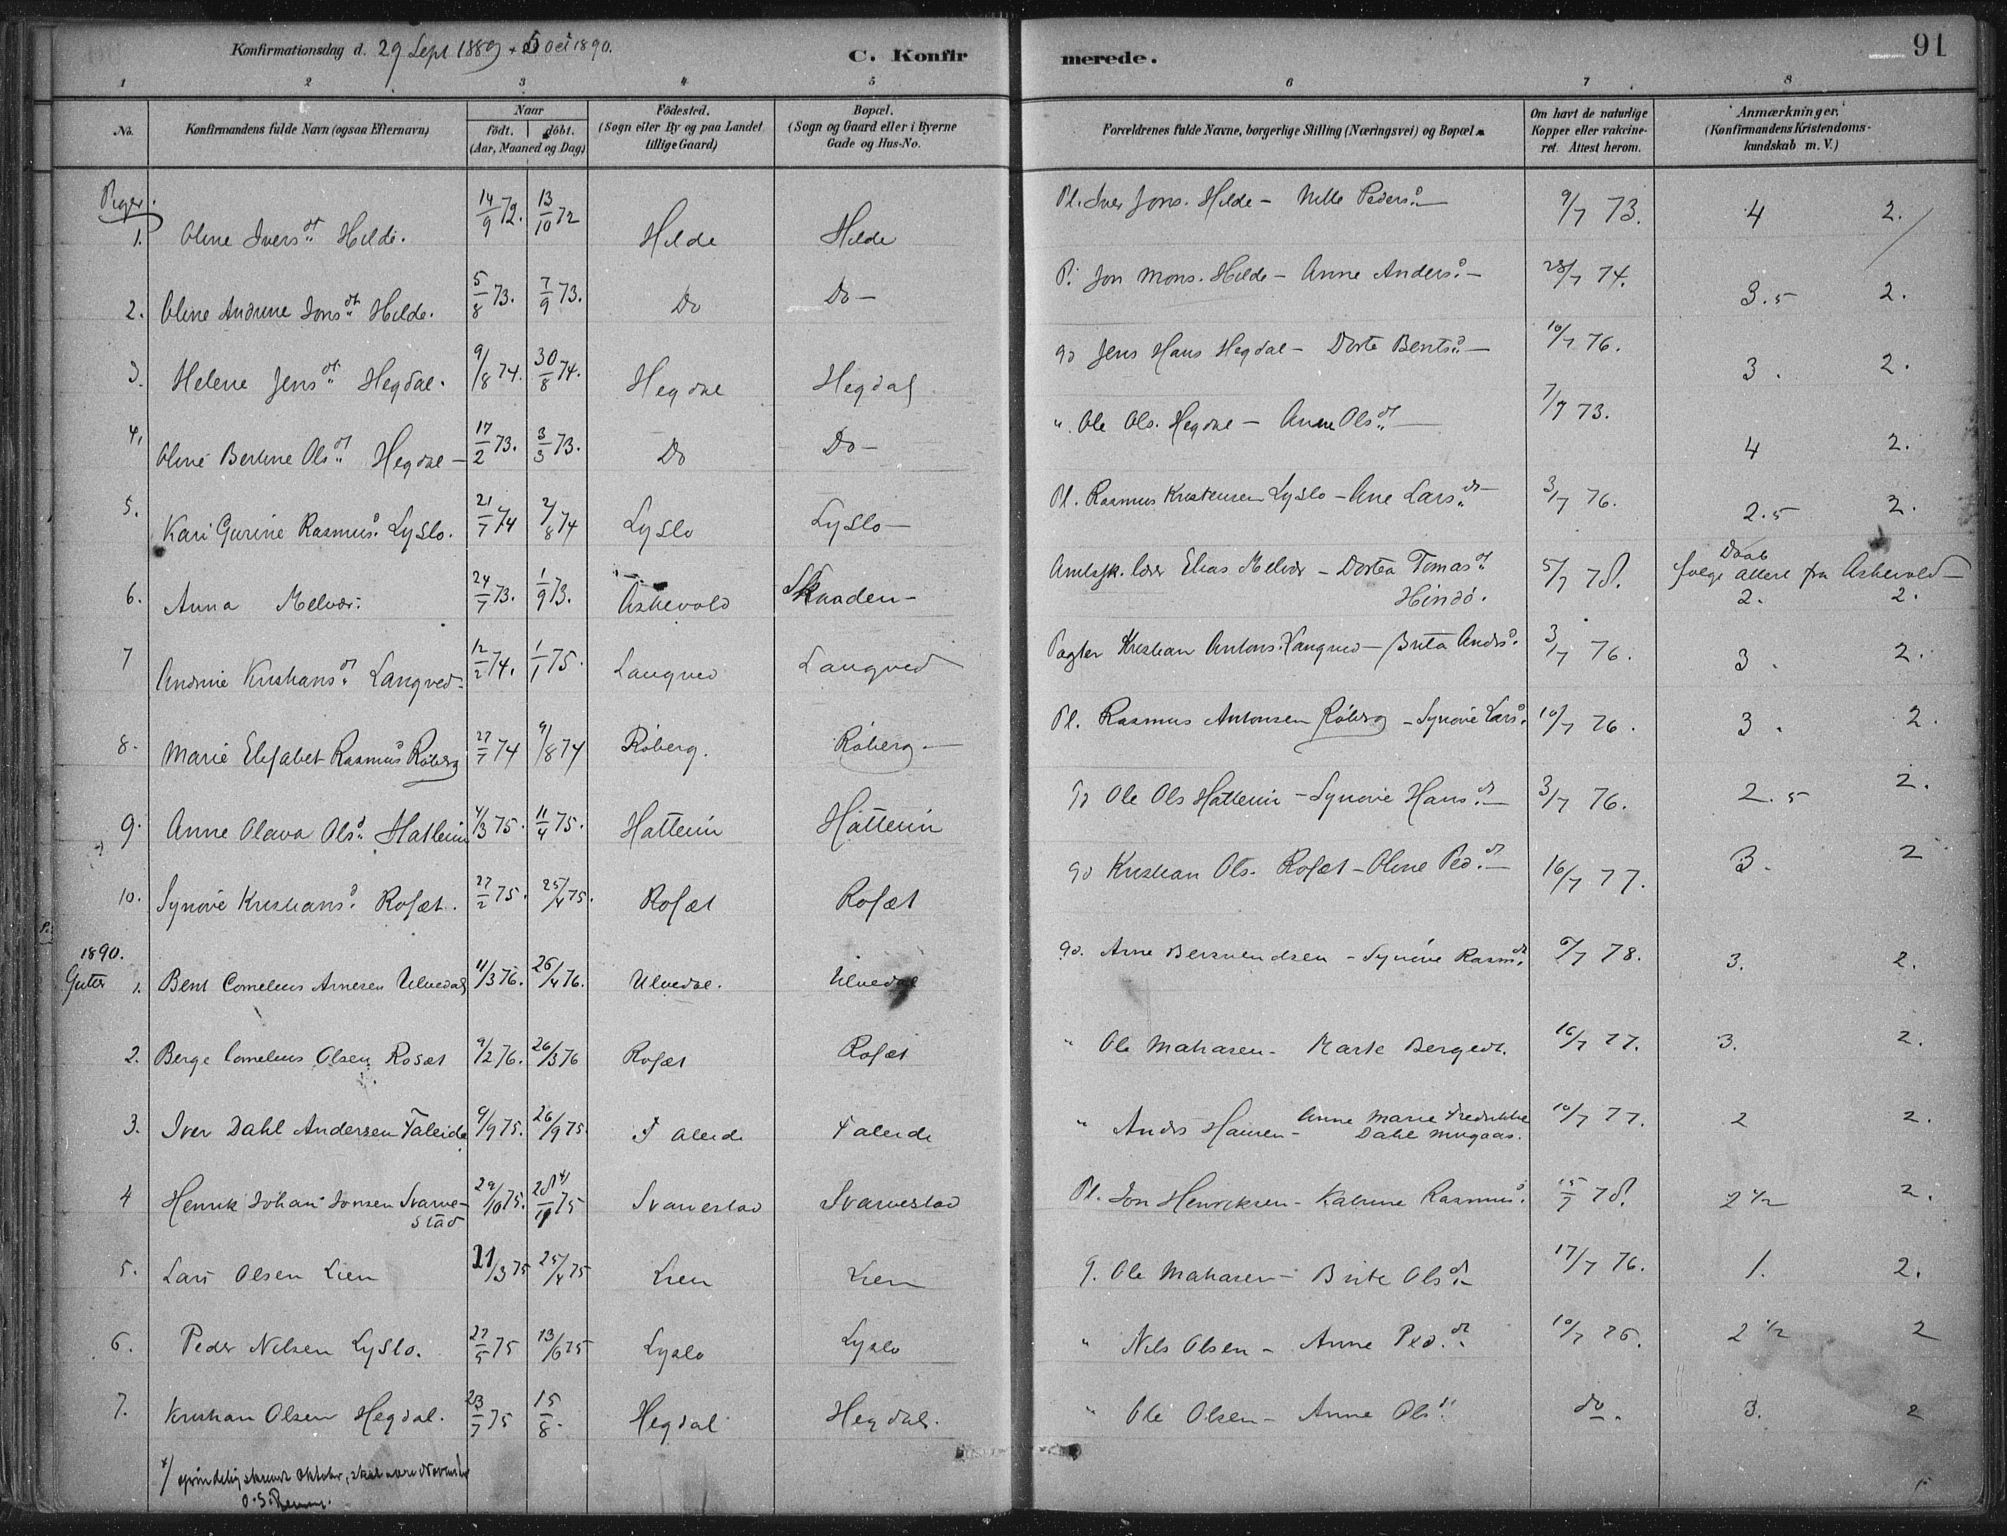 Konfirmationsdag d. 29 Sept 1889 + 5 Oct 1890.
C. Konfirmerede.
91
1 2 3 4 5 6 7 8
No. Konfirmandens fulde Navn (ogsaa Efternavn) Naar født. døbt. (Aar, Maaned og Dag) Fødested. (Sogn eller By og paa Landet tillige Gaard) Bopæl. (Sogn og Gaard eller i Byerne Gade og Hus-No. Forældrenes fulde Navne, borgerlige Stilling (Næringsvei) og Bopæl. Om havt de naturlige Kopper eller vakcineret. Attest herom. Anmærkninger. (Konfirmandens Kristendomskundskab m. V.)
Piger.
1. Oline Iversdt Hilde. 14/9 72. 13/10 72 Hilde Hilde Pl. Iver Jons. Hilde - Nille Pedersd - 9/7 73. 4 2.
2. Oline Andrine Jonsdt Hilde. 5/8 73. 7/9 73. Do Do - P. Jon Mons. Hilde - Anne Andersd - 28/7 74. 3.5 2.
3. Helene Jensdt Hegdal. 9/8 74. 30/8 74. Hegdal Hegdal Jens Hans Hegdal - Dorte Bentsd - 10/7 76. 3. 2.
4. Oline Bertine Olsdt Hegdal - 17/2 73. 3/3 73. Do Do - " Ole Ols. Hegdal - Anne Olsdt - 7/7 73. 4 2.
5. Kari Gurine Rasmusd. Lyslo. 21/7 74 2/8 74 Lyslo Lyslo - Pl. Rasmus Kristensen Lyslo - Ane Larsd - 3/7 76. 2.5 2.
6. Anna Melvær. 24/7 73. 1/9 73. Askevold Skaaden - Amtssk. lærer Elias Melvær - Dortea Tomasdt Hindö. 5/7 78. Daab følge attest fra Askevold - 2. 2.
7 Andrine Kristiansdt Langved - 12/2 74. 1/1 75. Langved Langved Pagter Kristian Antons. Langved - Brita Andsd. 3/7 76. 3. 2.
8. Marie Elisabet Rasmusd Røberg 27/7 74 9/8 74 Røberg. Røberg - Pl. Rasmus Antonsen Røberg - Synøve Larsd. 10/7 76. 3. 2.
9. Anne Olava Olsd. Hatlenin 4/3 75. 11/4 75. Hattenin Hattenin Ole Ols Hattenin - Synøve Hansd - 3/7 76. 2.5 2.
10. Synøve Kristiansd. Rosæt. 27/2 75. 25/4 75. Rosæt Rosæt Kristian Ols. Rosæt - Oline Pedd - 16/7 77. 3. 2
1890.
Guter 1. Bent Cornelius Arnesen Ulvedal 11/3 76. 26/4 76. Ulvedal. Ulvedal Arne Bersvendsen - Synøve Rasmd. 6/7 78. 3. 2.
2. Berge Cornelius Olsen Rosæt 9/2 76. 26/3 76 Rosæt Rosæt " Ole Matiasen - Marte Bergedt. 16/7 77. 3. 2.
3. Iver Dahl Andersen Faleide 9/9 75. 26/9 75. Faleide Faleide " Anders Hansen - Anne Marie Fredrikke Dahl 10/7 77. 2 2.
4 Henrik Johan Jonsen Svarvestad 29/10 75. 28/11 75 x) Svarvestad Svarvestad Pl. Jon Henriksen - Katrine Rasmusd. 15/7 78. 2 1/2 2.
5. Lars Olsen Lien 21/3 75 25/4 75 Lien Lien G. Ole Matiasen - Brite Olsd - 17/7 76. 1. 2.
6. Peder Nilsen Lyslo. 27/5 75 13/6 75 Lyslo Lyslo " Nils Olsen - Anne Pedd. 10/7 76. 2 1/2 2
7. Kristian Olsen Hegdal. 23/7 75 15/8. Hegdal Hegdal. " Ole Olsen - Anne Olsd. do. 3. 2
x) oprindelig skrevet Oktober, skal være November
O. S.